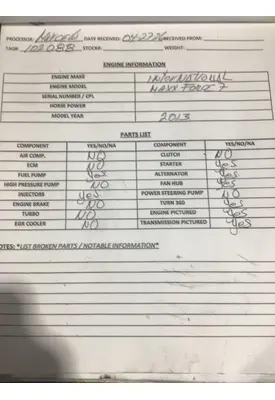 PROCESSOR: Marcelo DATE RECEIVED: 04-27-26 RECEIVED FROM:
TAG#: 102088 STOCK#: WEIGHT:
ENGINE INFORMATION
ENGINE MAKE INTERNATIONAL
ENGINE MODEL MAXX FORCE 7
SERIAL NUMBER / CPL
HORSE POWER
MODEL YEAR 2013
PARTS LIST
COMPONENT YES/NO/NA COMPONENT YES/NO/NA
AIR COMP. NO CLUTCH NO
ECM NO STARTER Yes
FUEL PUMP Yes ALTERNATOR Yes
HIGH PRESSURE PUMP NO FAN HUB Yes
INJECTORS Yes POWER STEERING PUMP NO
ENGINE BRAKE NO TURN 360 Yes
TURBO NO ENGINE PICTURED Yes
EGR COOLER NO TRANSMISSION PICTURED Yes
NOTES: *LIST BROKEN PARTS / NOTABLE INFORMATION*